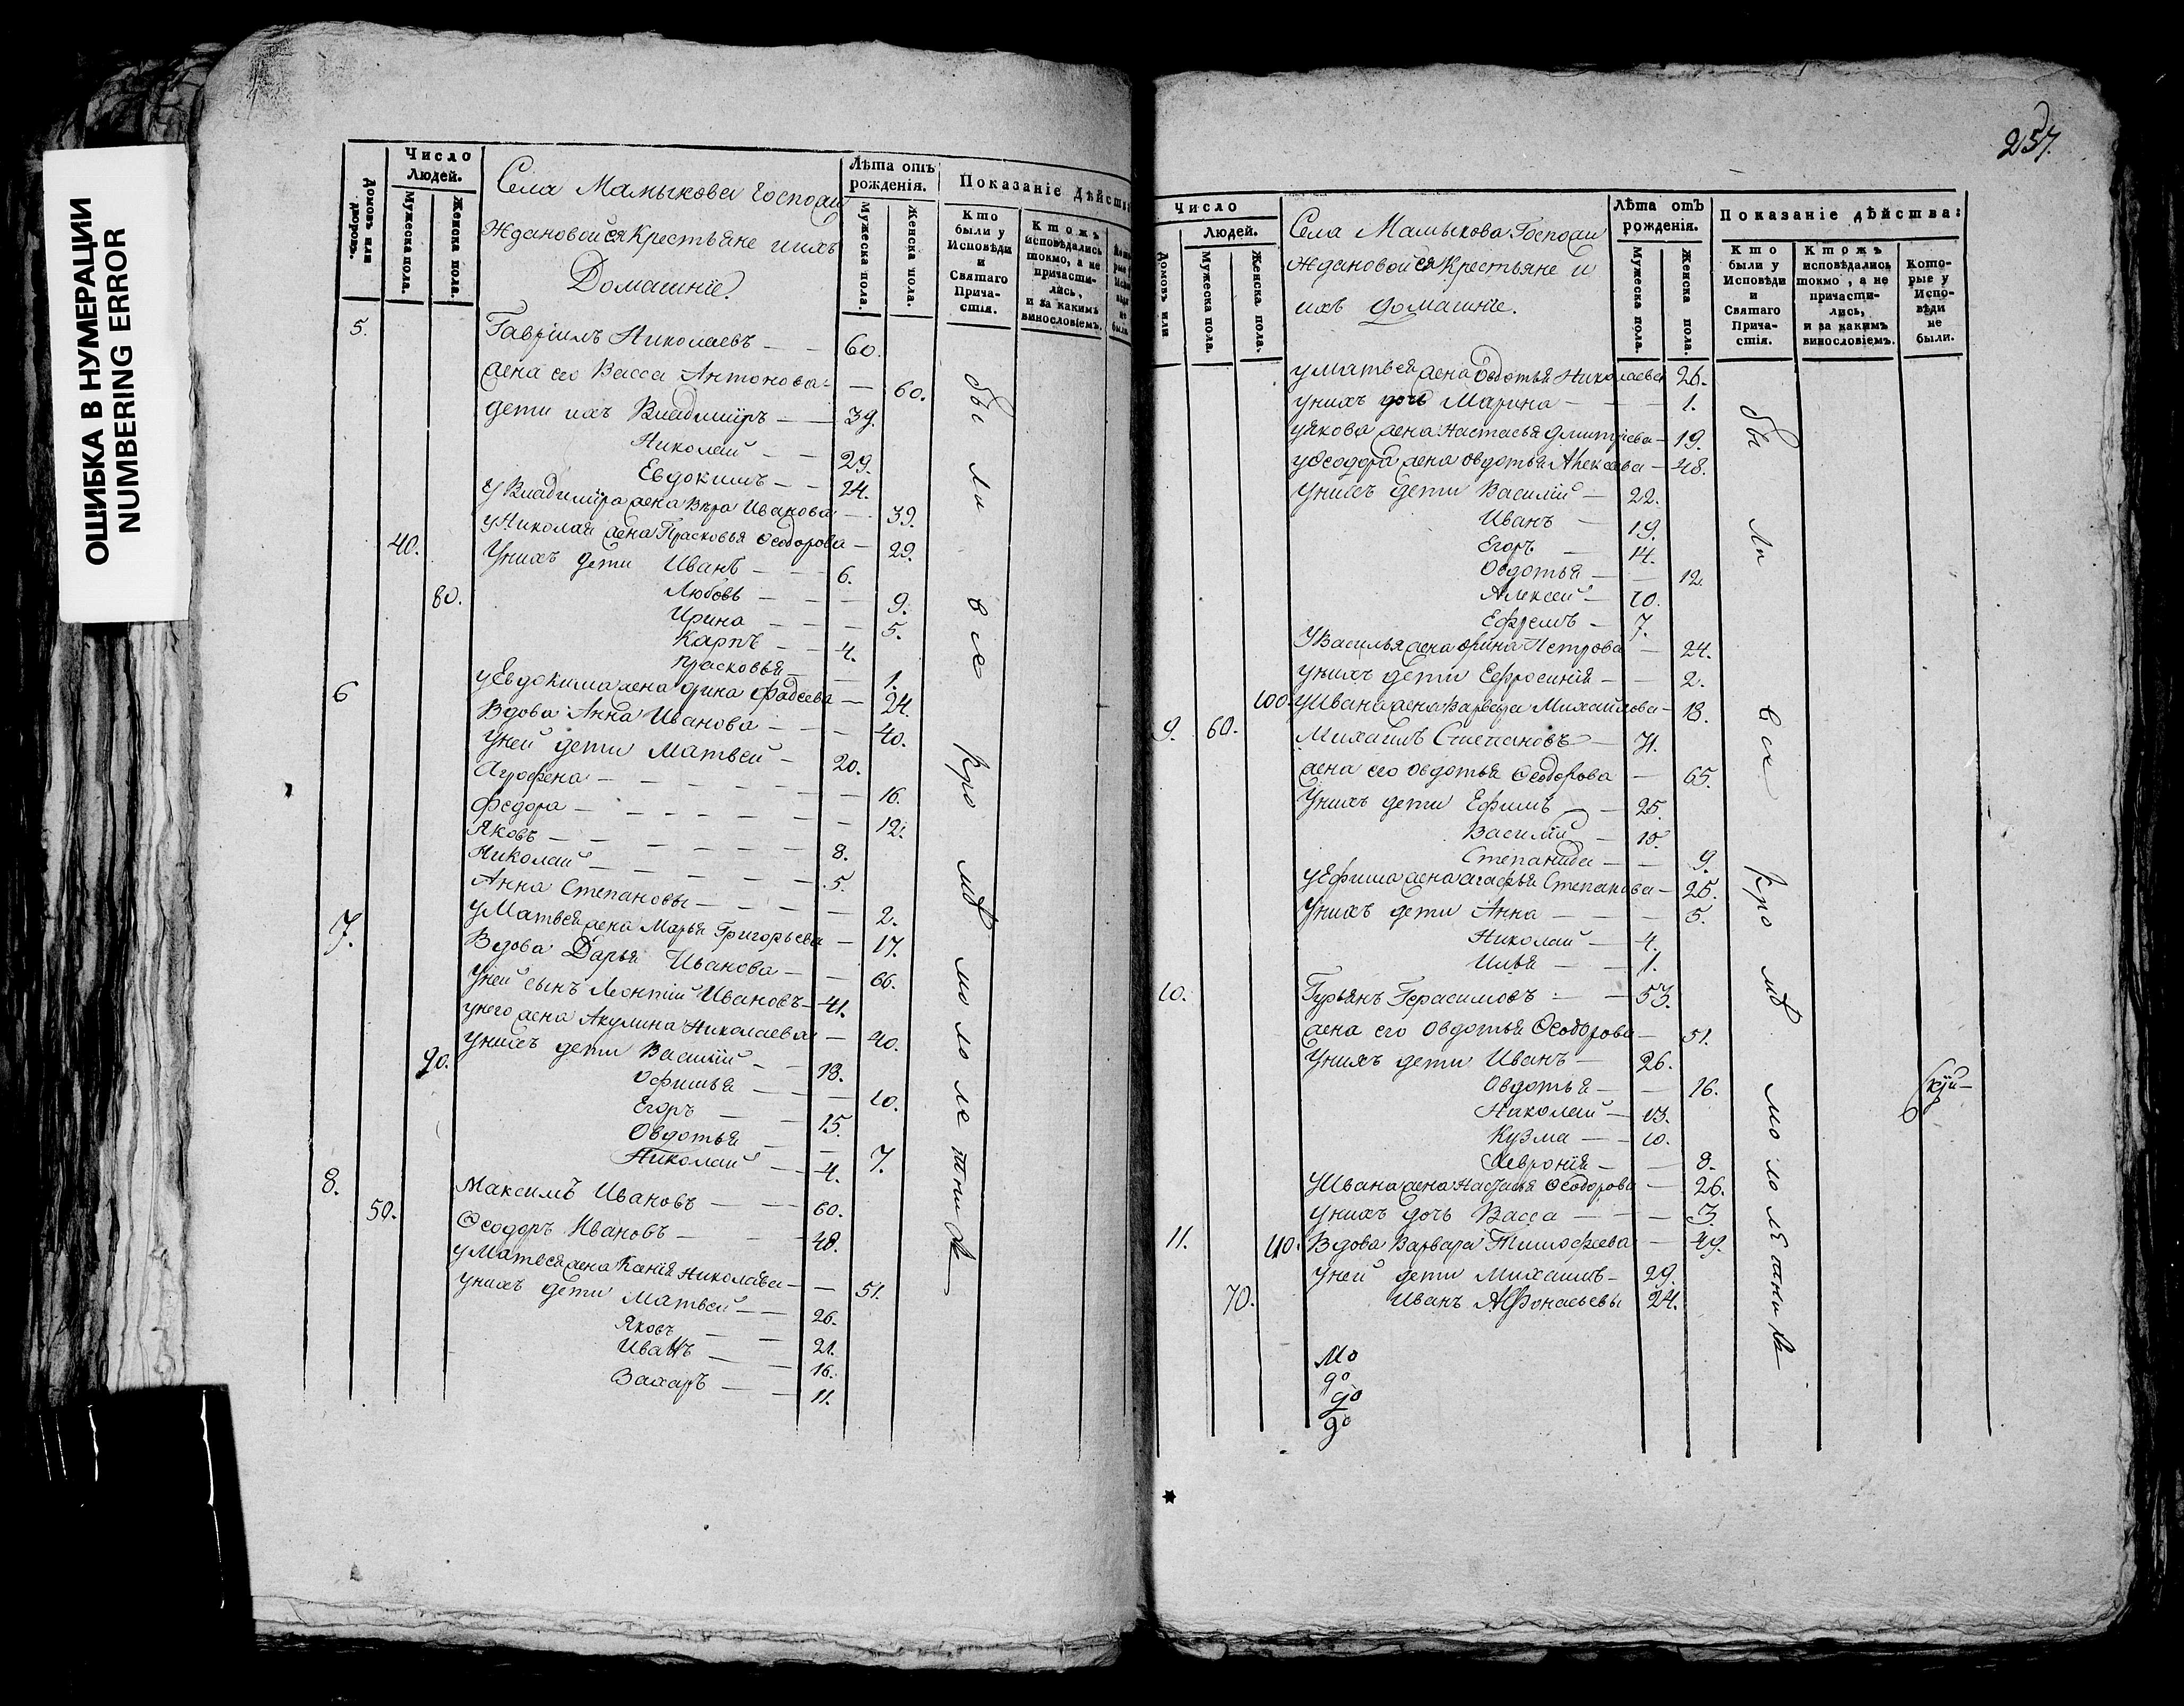 ОШИБКА В НУМЕРАЦИИ
NUMBERING ERROR
Домовъ или дворовъ.
Число Людей.
Мужеска пола.
Женска пола.
Села Мамыкова Господи
Ждановой ея Крестьяне и ихъ
Домашніе.
Лѣта отъ рожденія.
Мужеска пола.
Женска пола.
Показаніе Дѣйств
Кто были у Исповѣди и Святаго Причастія.
Ктожъ исповѣдались токмо, а не причастились, и за какимъ винословіемъ.
5. Гавріилъ Николаевъ — — 60.
жена его Васса Антонова — — 60.
дети ихъ Владимиръ — — 39.
Николай — — 29.
Евдокимъ — — 24.
у Владимира жена Вѣра Иванова — 39.
у Николая жена Прасковья Ѳеодорова — 29.
40. Унихъ дети Иванъ — — 6.
80. Любовь — — — 9.
Ирина — — — 5.
Карпъ — — 4.
Прасковья — — 1.
у Евдокима жена Орина Фадеева — 24.
6 Вдова Анна Иванова — — — 40.
Уней дети Матвей — 20.
Агрофена — — — — 16.
Федора — — — — — 12.
Яковъ — — — — — 8.
Николай — — — — — 5.
Анна Степановы — — — — 2.
у Матвея жена Марья Григорьева — 17.
7. Вдова Дарья Иванова — — 66.
Уней сынъ Леонтий Ивановъ — 41.
унего жена Акулина Николаева — 40.
90. унихъ дети Василий — — 18.
Офимья — — — 10.
Егоръ — — 15.
Овдотья — — 7.
Николай — — 4.
8. Максимъ Ивановъ — — 60.
50. Ѳеодоръ Ивановъ — — 48.
у Матвея жена Ксенія Николаева — — 51.
унихъ дети Матвей — — 26.
Яковъ — — 21.
Иванъ — — 16.
Захаръ — — 11.
бы ли все кро мѣ мо ло ле тни х
257.
Число
Домовъ или
Людей.
Мужеска пола.
Женска пола.
Села Мамыкова Господи
Ждановой ея Крестьяне и
ихъ домашніе.
Лѣта отъ рожденія.
Мужеска пола.
Женска пола.
Показаніе дѣйства:
Кто были у Исповѣди и Святаго Причастія.
Ктожъ исповѣдались токмо, а не причастились, и за какимъ винословіемъ.
Которые у Исповѣди не были.
у Матвея жена Овдотья Николаева 26.
унихъ дочь Марина — — — 1.
у Якова жена Настасья Дмитріева — 19.
у Ѳеодора жена Овдотья Алексеева — 48.
Унихъ дети Василій — 22.
Иванъ — 19.
Егоръ — 14.
Овдотья — — 12.
Алексей — 10.
Ефремъ — 7.
У Василья жена Орина Петрова — 24.
унихъ дети Ефросинія — — 2.
100. у Ивана жена Варвара Михайлова — 18.
9. 60. Михаилъ Степановъ — 71.
жена его Овдотья Ѳеодорова — 65.
Унихъ дети Ефимъ — — 25.
Василій — 10.
Степанида — — 9.
у Ефима жена Агафья Степанова — 25.
Унихъ дети Анна — — — 5.
Николай — 4.
Илья — — 1.
10. Гурьянъ Герасимовъ — — 53.
жена его Овдотья Ѳеодорова — 51.
Унихъ дети Иванъ — 26.
Овдотья — — 16.
Николай — 13.
Кузма — — 10.
Хевронія — — 8.
У Ивана жена Настасья Ѳеодорова — 26.
Унихъ дочь Васса — — — 3.
11. 110. Вдова Варвара Тимофеева — 49.
Уней дети Михаилъ — 29.
70. Иванъ Афонасьевы 24.
Мо
до
до
до
бы ли все кро мѣ мо ло ле тни х